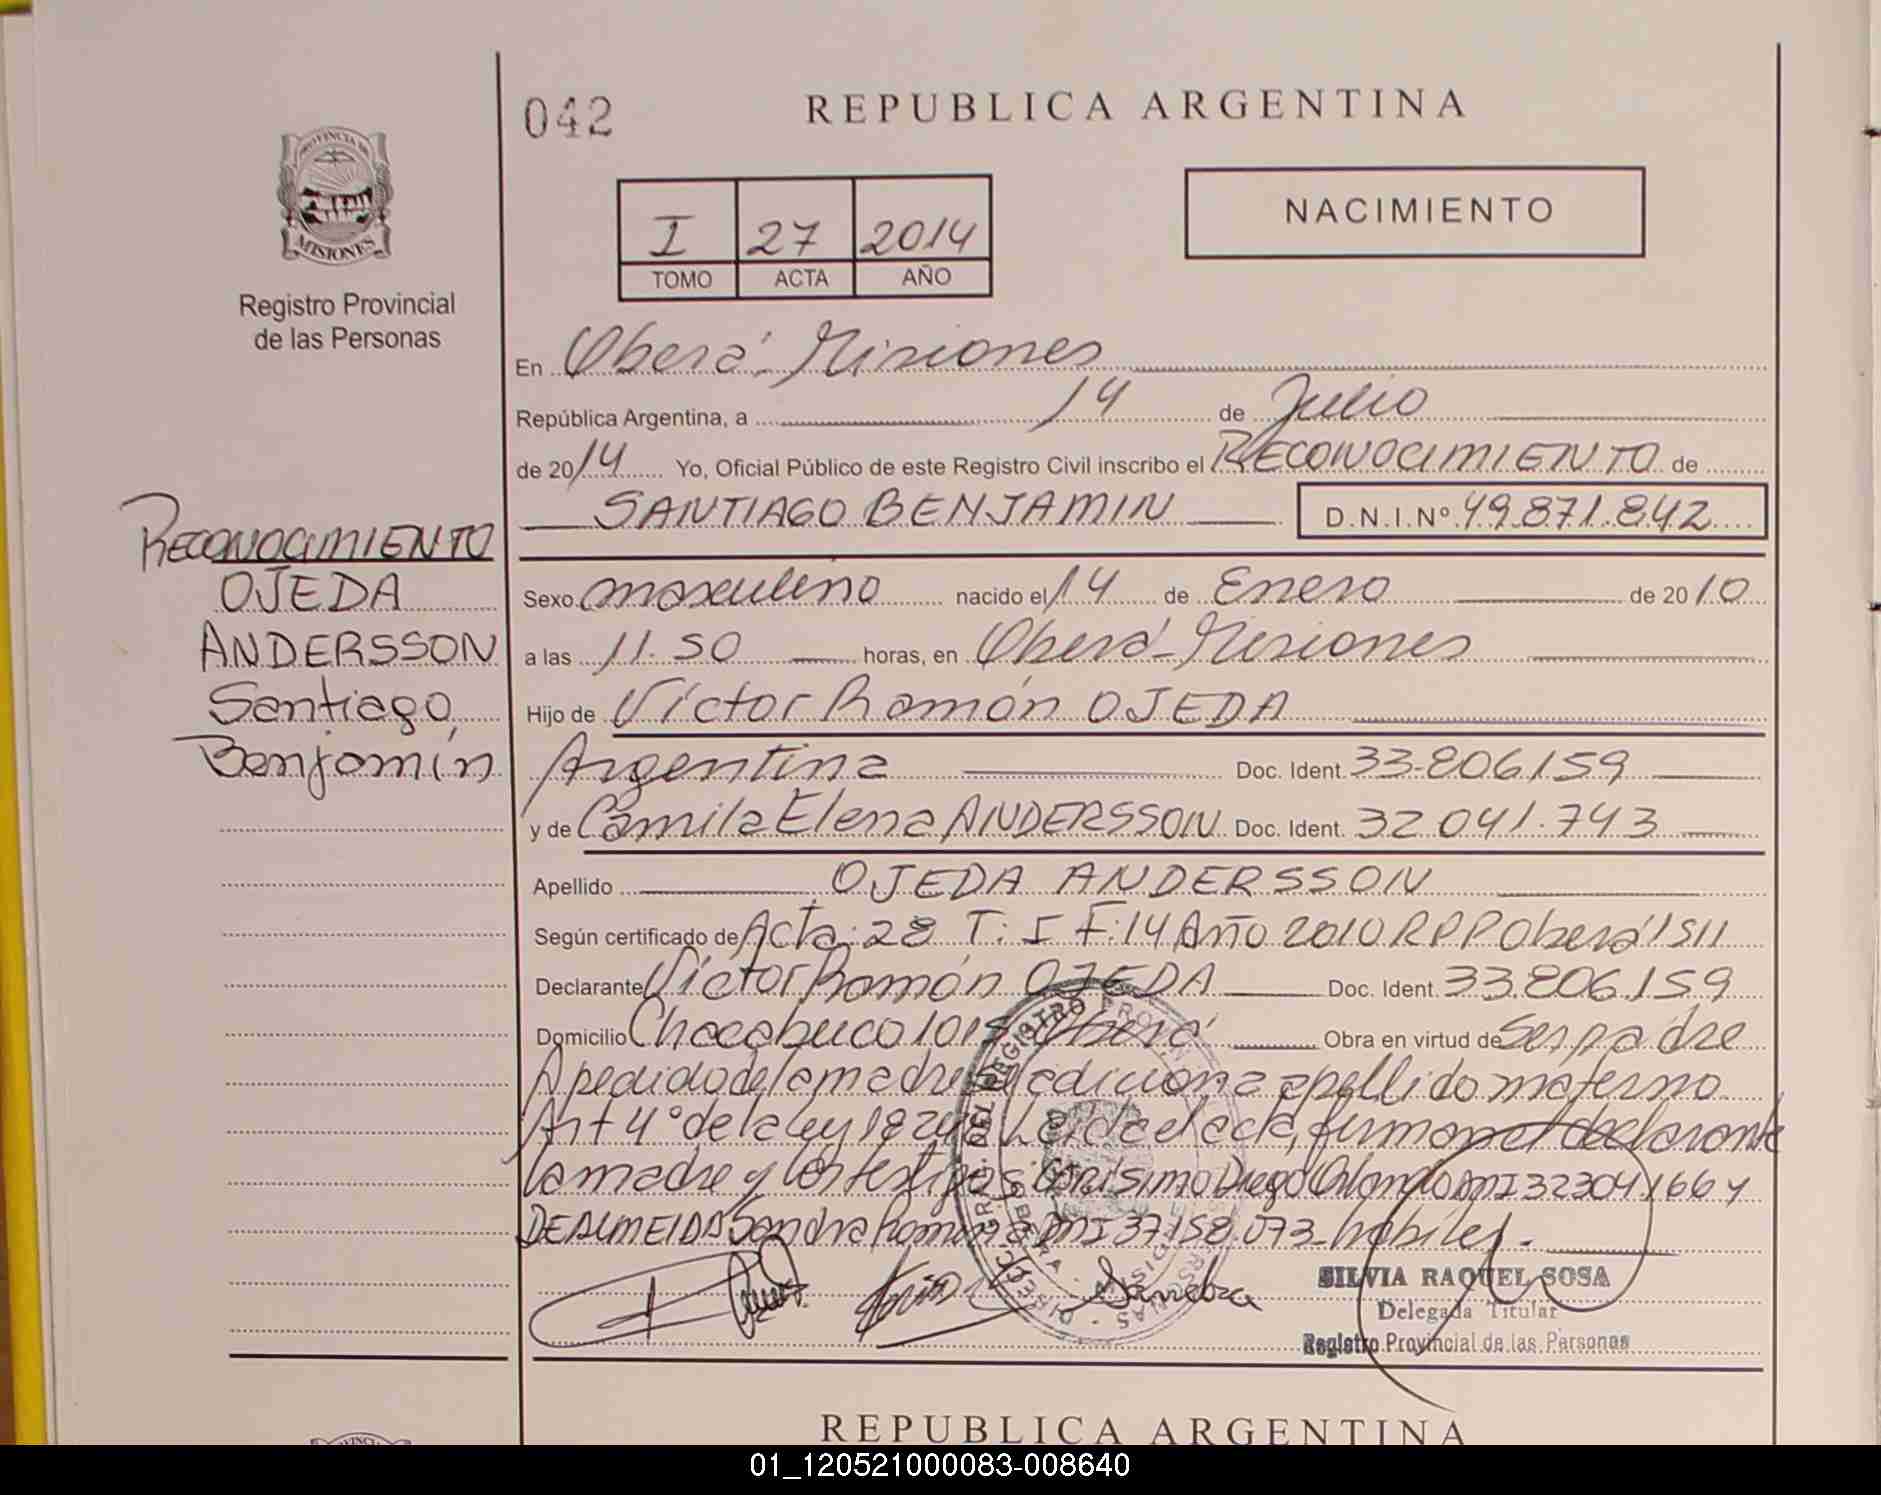 042
REPUBLICA ARGENTINA
PROVINCIA DE
MISIONES
Registro Provincial
de las Personas
I 27 2014
TOMO ACTA AÑO
NACIMIENTO
En Oberá - Misiones
República Argentina, a 14 de Julio
de 2014 Yo, Oficial Público de este Registro Civil inscribo el RECONOCIMIENTO de
SANTIAGO BENJAMIN D.N.I.Nº 49.871.842
RECONOCIMIENTO
OJEDA
ANDERSSON
Santiago
Benjamín
Sexo masculino nacido el 14 de Enero de 2010
a las 11.50 horas, en Oberá - Misiones
Hijo de Víctor Ramón OJEDA
Argentina Doc. Ident. 33.806.159
y de Camila Elena ANDERSSON Doc. Ident. 32.041.743
Apellido OJEDA ANDERSSON
Según certificado de Acta: 28 T: I F: 14 Año 2010 RPP Oberá 1511
Declarante Víctor Ramón OJEDA Doc. Ident. 33.806.159
Domicilio Chacabuco 1015 Oberá Obra en virtud de ser padre
A pedido de la madre se adiciona apellido materno
Art 4° de la ley 18248 Leida el acta, firman el declarante
la madre y los testigos: Diego Orlando DNI 32304166 y
DE ALMEIDA Sandra Romina DNI 37.158.073 hábiles.
Sandra
SILVIA RAQUEL SOSA
Delegada Titular
Registro Provincial de las Personas
REPUBLICA ARGENTINA
01_120521000083-008640